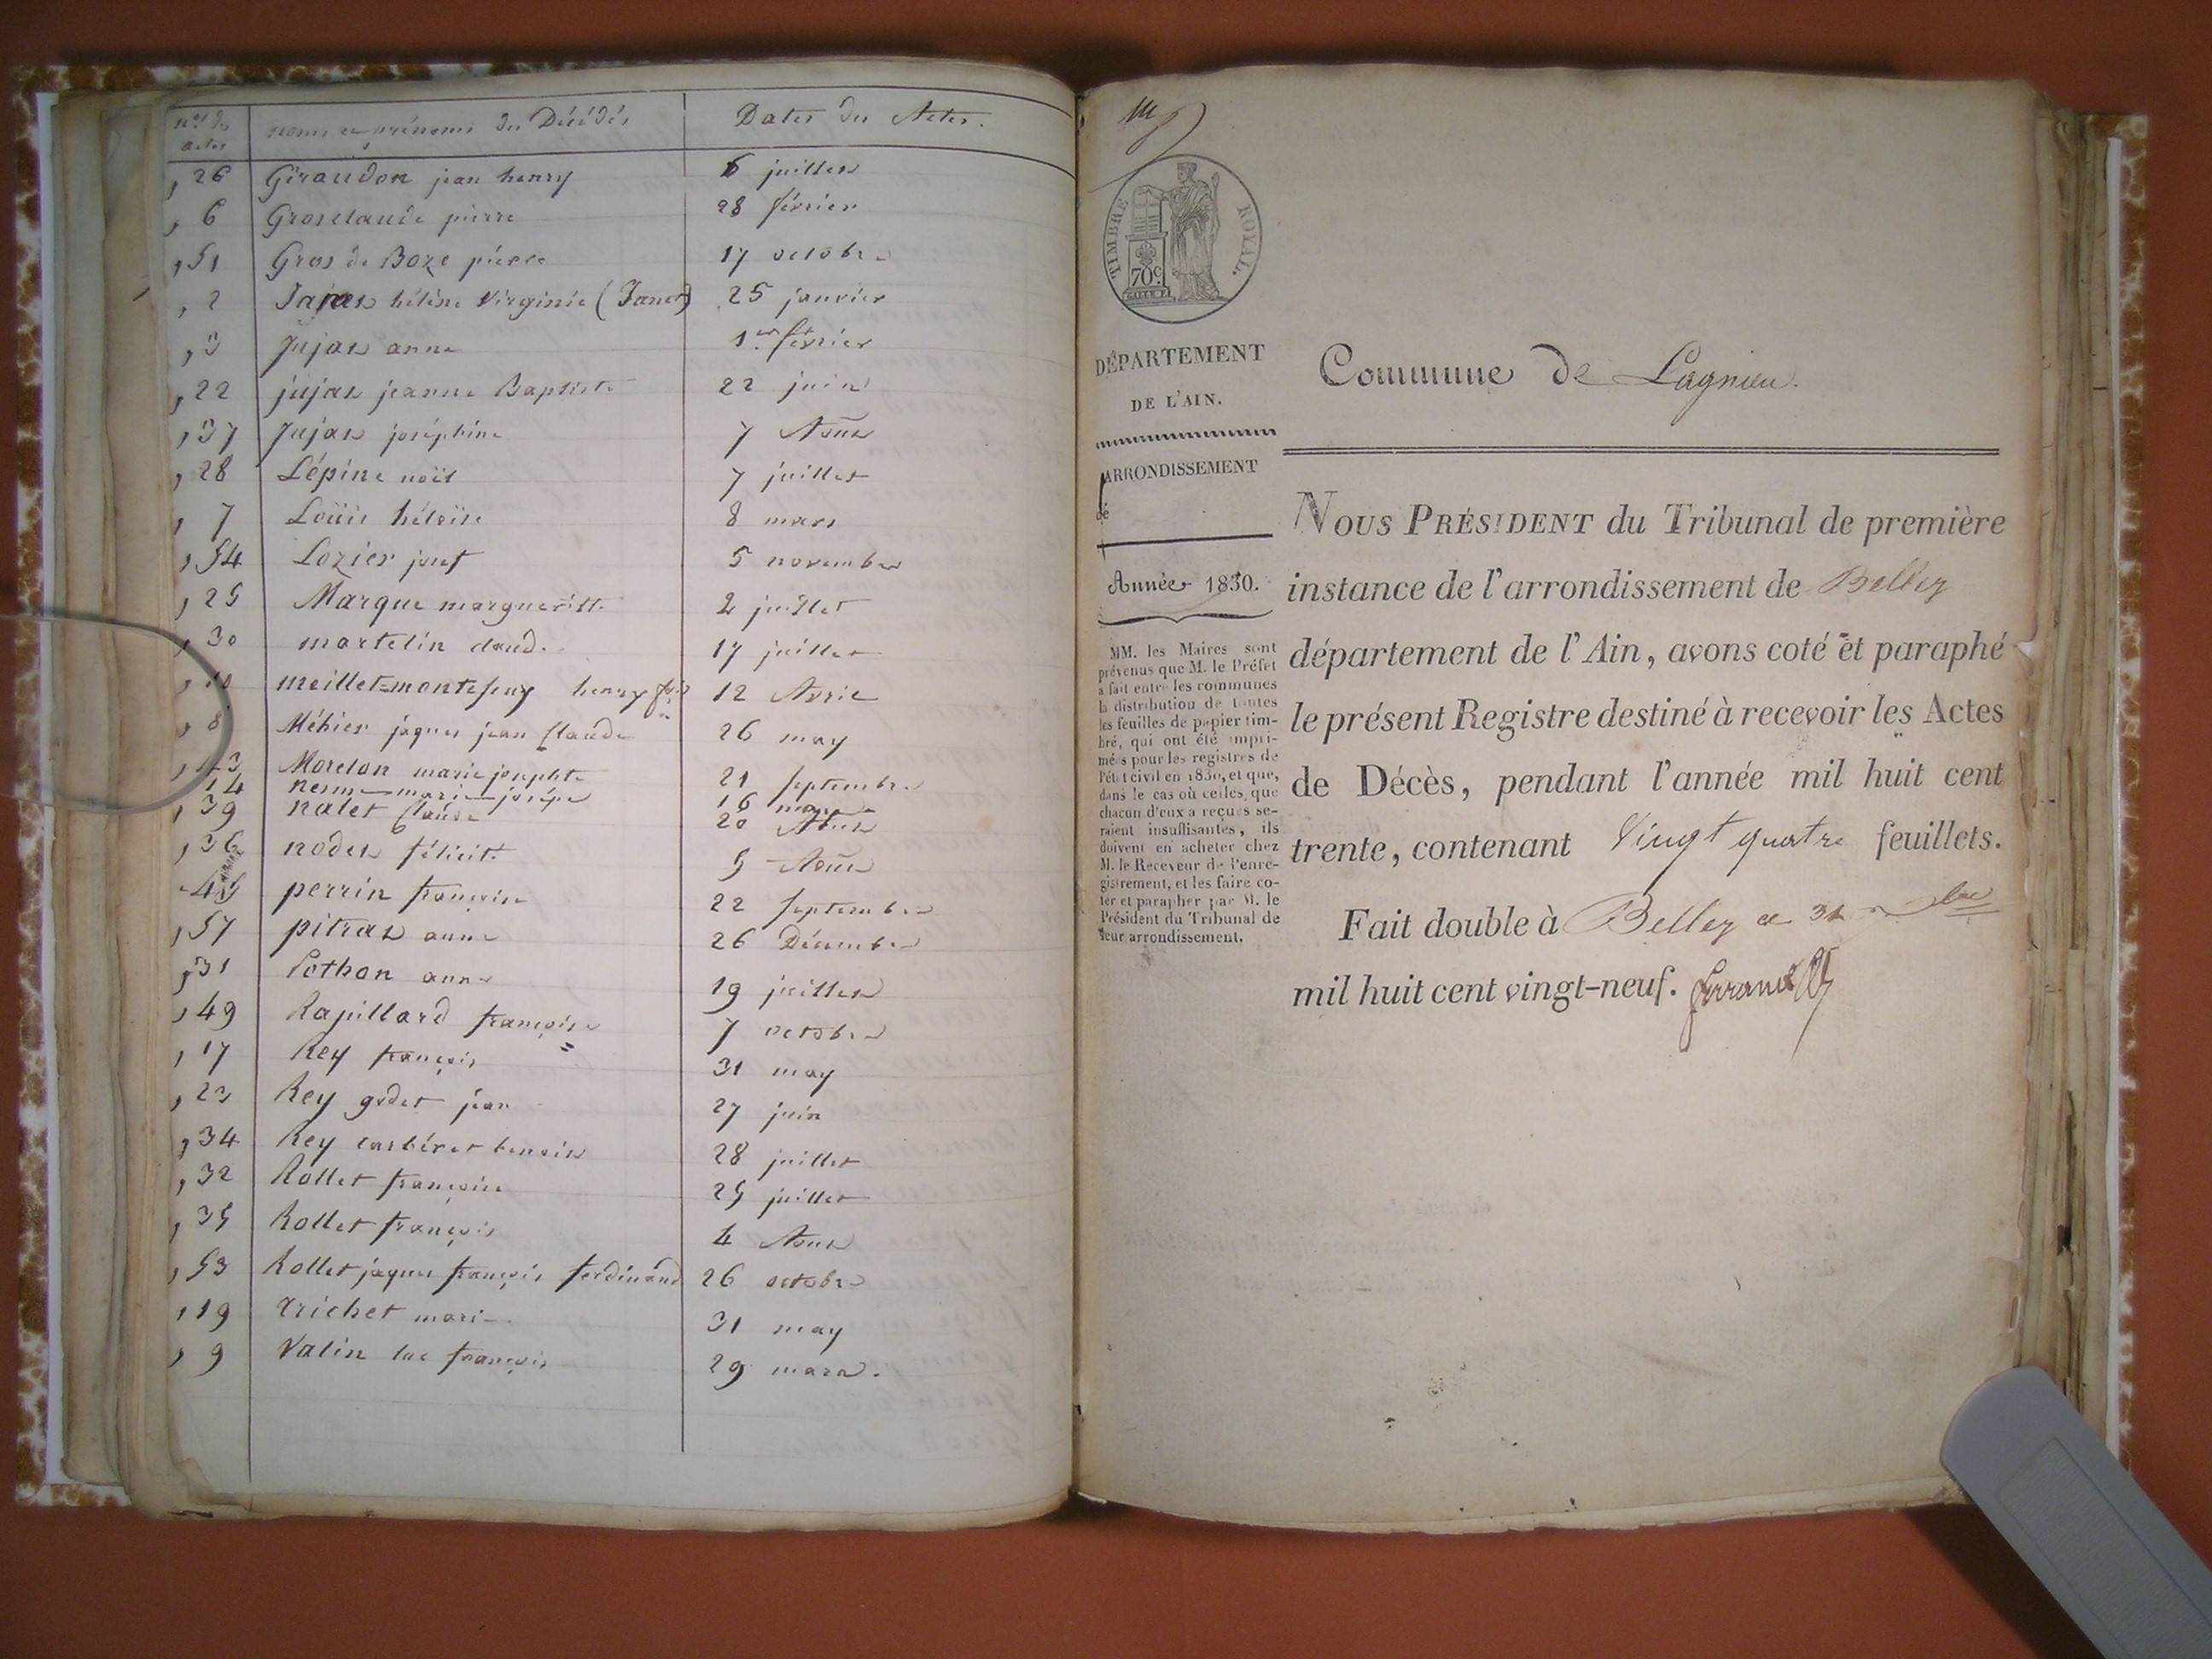 nos des actes noms et prénoms des Décédés Dates des Actes.
26 Giraudon jean henry 6 juillet
6 Grosclaude pierre 28 février
51 Gros de Boze pierre 17 octobre
2 hélène Virginie (Janet) 25 janvier
3 Jujat anne 1er février
22 jujat jeanne Baptiste 22 juin
37 Jujat joséphine 7 Aout
28 Lépine noël 7 juillet
7 Loüis héloïse 8 mars
54 Lozier josef 5 novembre
25 Marque margueritte 2 juillet
30 martelin claude 17 juillet
10 meillet=montessuy henry 12 Avril
Méhier jaques jean Claude 26 may
Morelon marie josephte 21 septembre
14 nesme marie josèpe 16 may
39 nalet Claude 20 Aout
36 nodet félicité 5 Aout
45 perrin françoise 22 septembre
57 pitrat anne 26 Décembre
31 Pothon anne 19 juillet
49 Rapillard françoise 7 octobre
17 Rey françois 31 may
23 Rey godet jean 27 juin
34 Rey benoit 28 juillet
32 Rollet françoise 25 juillet
35 Rollet françois 4 Aout
53 Rollet jaques françois ferdinand 26 octobre
19 trichet marie 31 may
9 Valin luc françois 29 mars.
TIMBRE ROYAL.
70c
DÉPARTEMENT
DE L'AIN.
Commune de Lagnieu.
ARRONDISSEMENT
de
Année 1830.
MM. les Maires sont
prévenus que M. le Préfet
a fait entre les communes
la distribution de toutes
les feuilles de papier tim-
bré, qui ont été impri-
mées pour les registres de
l'état civil en 1830, et que,
dans le cas où celles que
chacun d'eux a reçues se-
raient insuffisantes, ils
doivent en acheter chez
M. le Receveur de l'enre-
gistrement, et les faire co-
ter et parapher par M. le
Président du Tribunal de
leur arrondissement.
NOUS PRÉSIDENT du Tribunal de première
instance de l'arrondissement de Belley
département de l'Ain, avons coté et paraphé
le présent Registre destiné à recevoir les Actes
de Décès, pendant l'année mil huit cent
trente, contenant Vingt quatre feuillets.
Fait double à Belley ce 31
mil huit cent vingt-neuf.